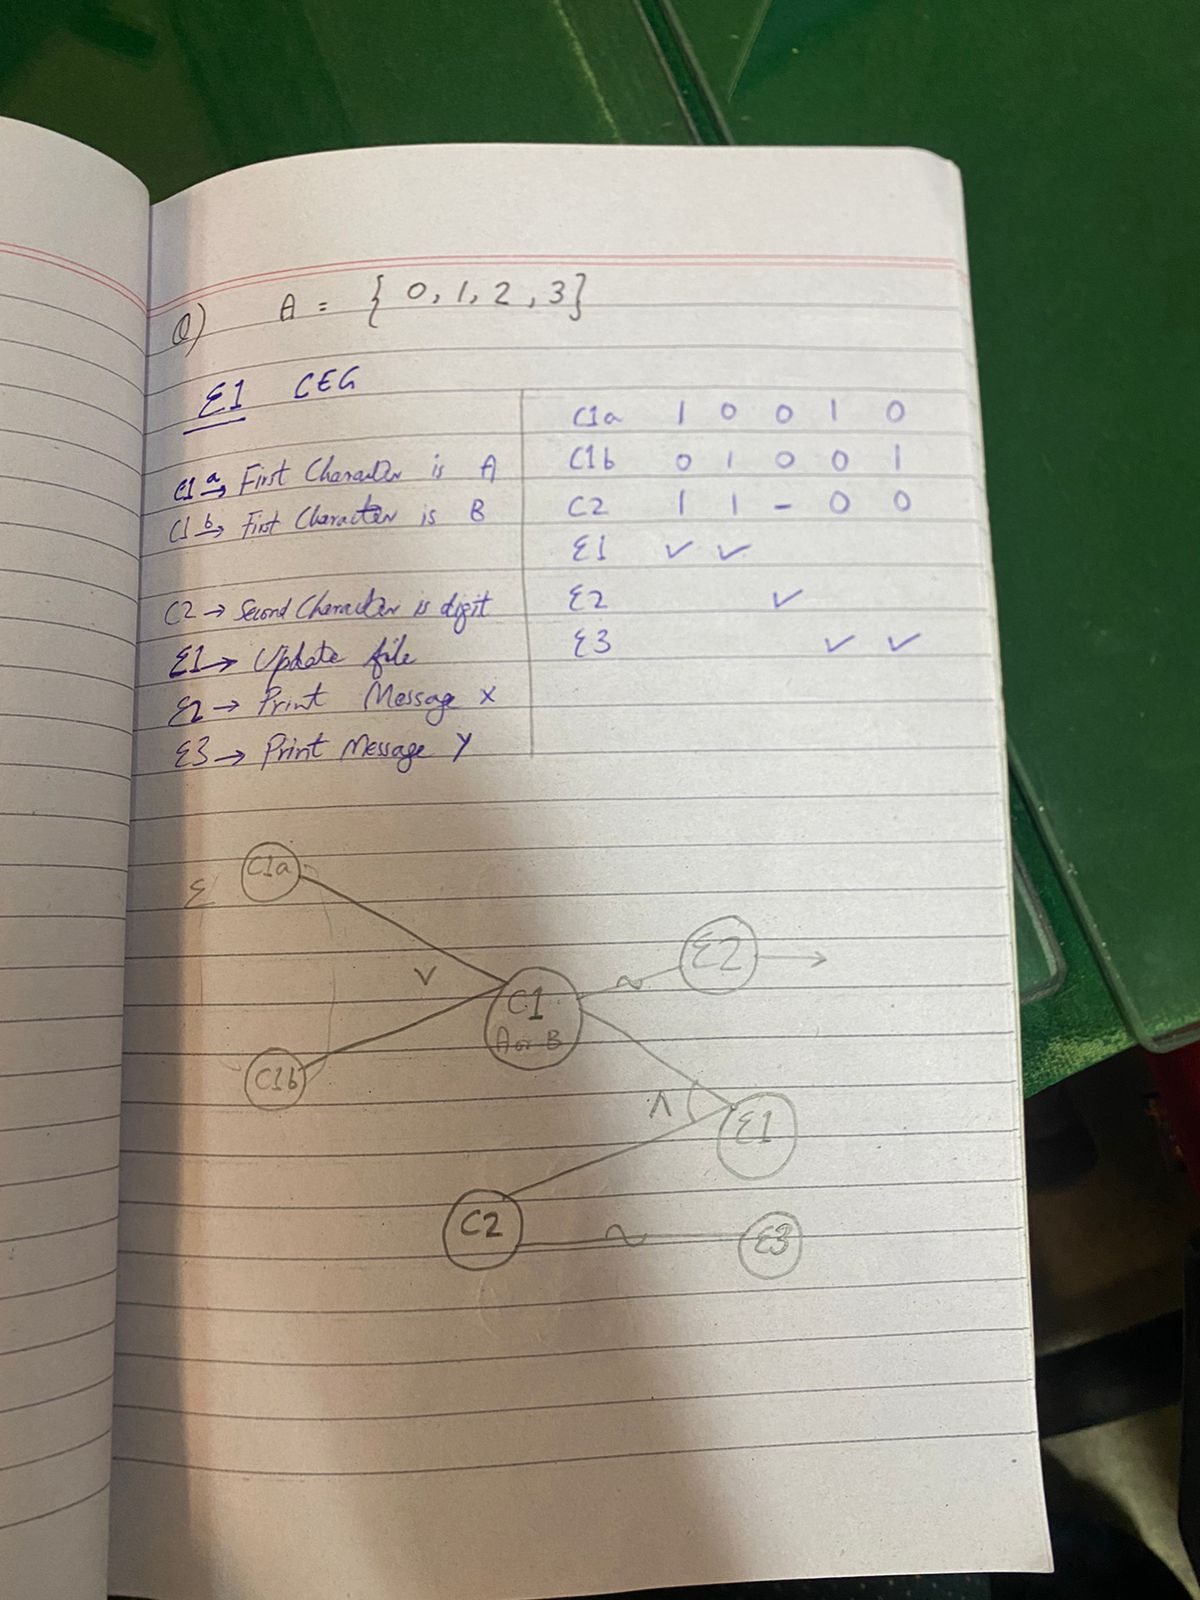 Q) A = { 0, 1, 2, 3}
E1 CEG
C1a → First Character is A
C1b → First Character is B
C2 → Second Character is digit
E1 → Update file
E2 → Print Message X
E3 → Print Message Y
C1a 1 0 0 1 0
C1b 0 1 0 0 1
C2 1 1 - 0 0
E1 ✓ ✓
E2 ✓
E3 ✓ ✓
C1a
E
E2
∨
C1
~
A or B
C1b
∧
E1
C2
~
E3